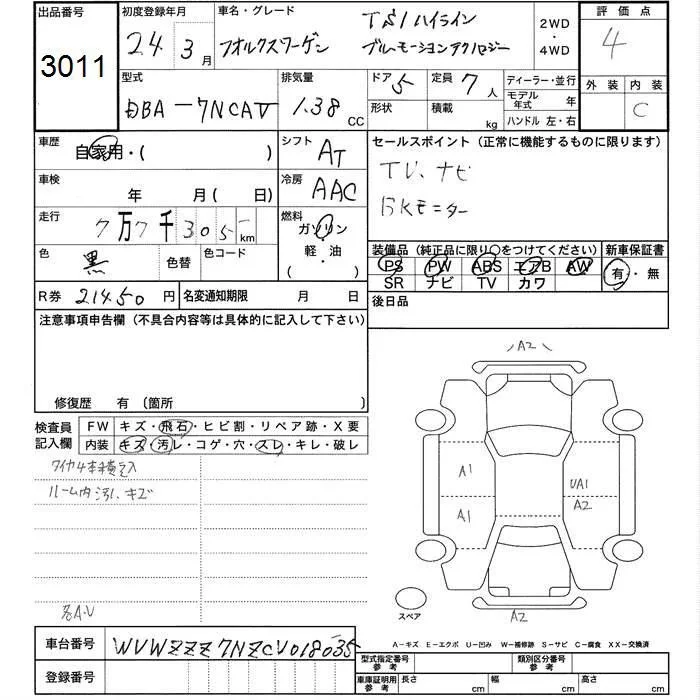 出品番号
3011
初度登録年月
24 3月
車名・グレード
TSI ハイライン
フオルクスワーゲン ブルーモーションテクノロジー
2WD
・
4WD
評価点
4
型式
DBA-7NCAV
排気量
1.38 CC
ドア 5
定員 7人
形状
積載 kg
ディーラー・並行
モデル年式 年
ハンドル 左・右
外装 内装
C
車歴
自家用・( )
シフト
AT
セールスポイント (正常に機能するものに限ります)
TV、ナビ
BKモニター
車検
年 月 ( 日)
冷房
AAC
走行
7万7千305 km
燃料
ガソリン
軽・油
( )
色
黒
色替
色コード
装備品 (純正品に限り○をつけてください)
PS PW ABS エアB AW
SR ナビ TV カワ
新車保証書
有・無
R券 21450円
名変通知期限 月 日
後日品
注意事項申告欄 (不具合内容等は具体的に記入して下さい)
修復歴 有 (箇所
検査員記入欄
FW キズ・飛石・ヒビ割・リペア跡・X要
内装 キズ・汚レ・コゲ・穴・スレ・キレ・破レ
タイヤ4本積込
ルーム内汚、キズ
各A・U
A2
A1
UA1
A1
A2
スペア
A2
車台番号
WVWZZZ7NZCV018035
登録番号
A-キズ E-エクボ U-凹み W-補修跡 S-サビ C-腐食 XX-交換済
型式指定番号参考
類別区分番号参考
車庫証明用参考
長さ cm
幅 cm
高さ cm